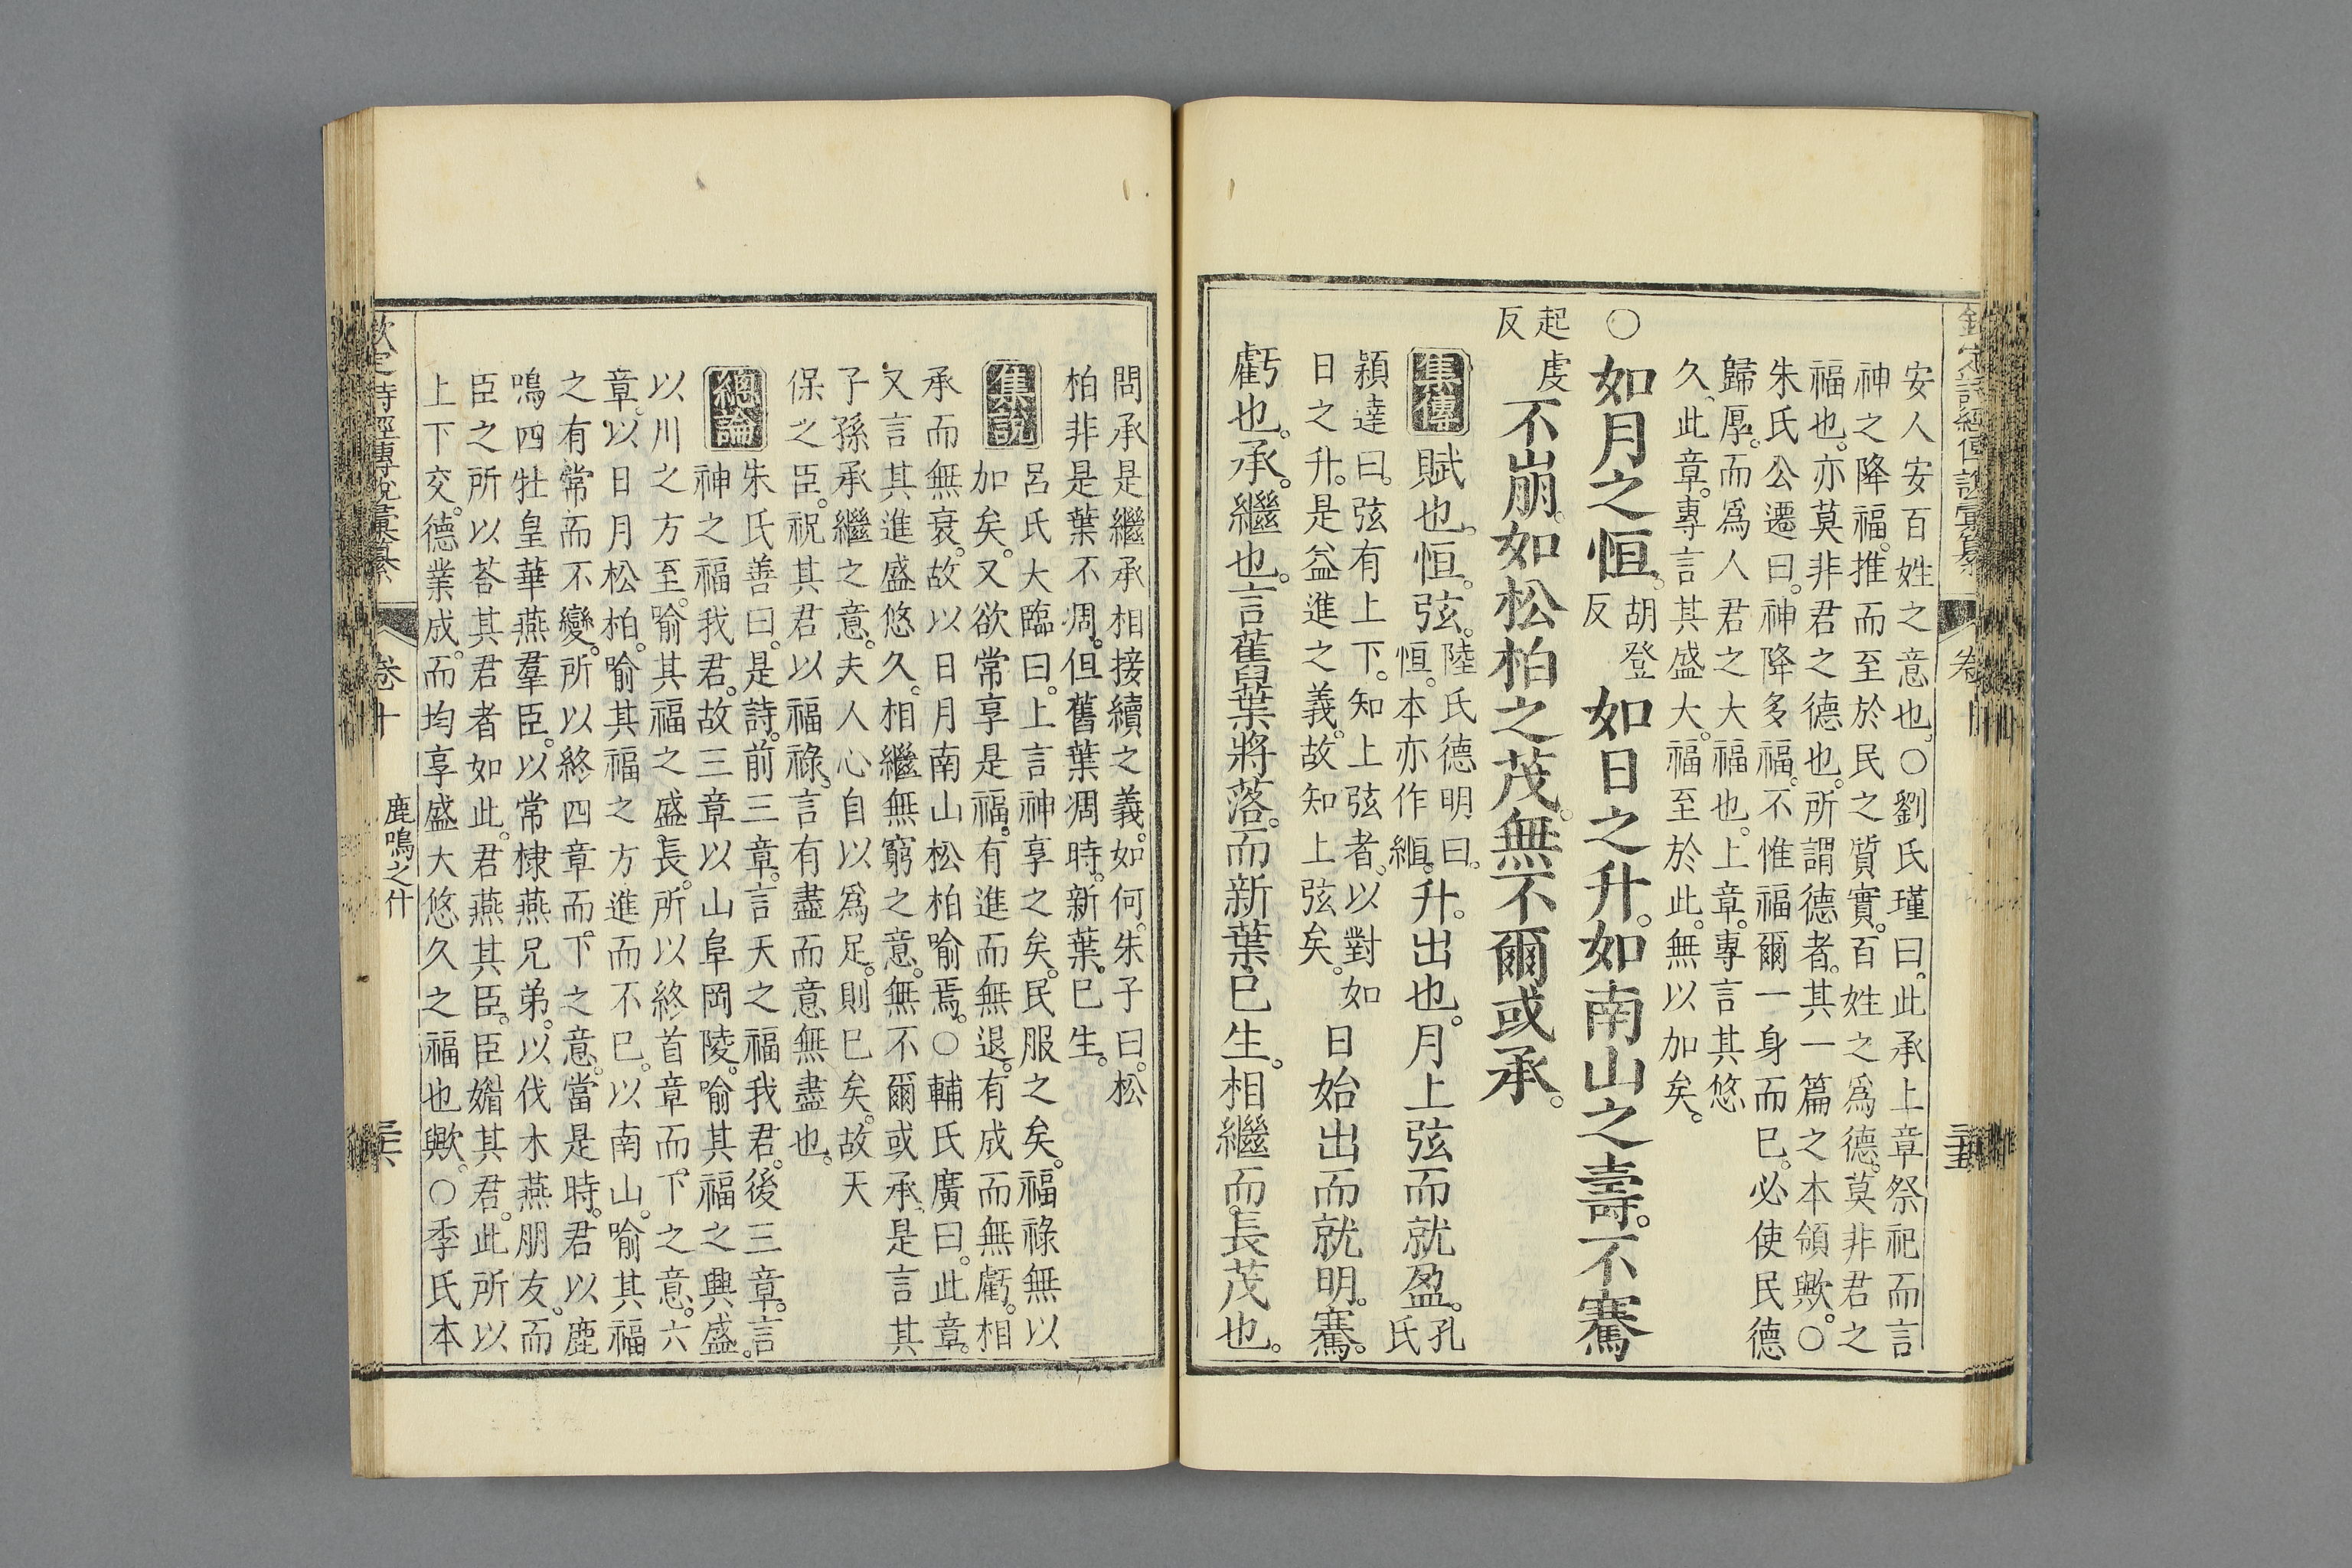 欽定詩經傳說彙纂 卷十 三十五
安人安百姓之意也。○劉氏瑾曰。此承上章祭祀而言
神之降福。推而至於民之質實。百姓之爲德。莫非君之
福也。亦莫非君之德也。所謂德者。其一篇之本領歟。○
朱氏公遷曰。神降多福。不惟福爾一身而已。必使民德
歸厚。而爲人君之大福也。上章。專言其悠
久。此章。專言其盛大。福至於此。無以加矣。
○如月之恒。胡登反如日之升。如南山之壽。不騫
起虔反不崩。如松柏之茂。無不爾或承。
集傳 賦也。恒。弦。陸氏德明曰。恒。本亦作縆。升。出也。月上弦而就盈。孔氏
穎達曰。弦有上下。知上弦者。以對如日之升。是益進之義。故知上弦矣。日始出而就明。騫。
虧也。承。繼也。言舊葉將落。而新葉已生。相繼而。長茂也。
問承是繼承相接續之義。如何。朱子曰。松
柏非是葉不凋。但舊葉凋時。新葉。已生。
集說 呂氏大臨曰。上言神享之矣。民服之矣。福祿無以
加矣。又欲常享是福。有進而無退。有成而無虧。相
承而無衰。故以日月南山松柏喻焉。○輔氏廣曰。此章。
又言其進盛悠久。相繼無窮之意。無不爾或承。是言其
子孫承繼之意。夫人心自以爲足。則已矣。故天
保之臣。祝其君以福祿。言有盡而意無盡也。
總論 朱氏善曰。是詩。前三章。言天之福我君。後三章。言
神之福我君。故三章以山阜岡陵。喻其福之興盛。
以川之方至。喻其福之盛長。所以終首章而下之意。六
章。以日月松柏。喻其福之方進而不已。以南山。喻其福
之有常而不變。所以終四章而下之意。當是時。君以鹿
鳴四牡皇華燕羣臣。以常棣燕兄弟。以伐木燕朋友。而
臣之所以荅其君者如此。君燕其臣。臣媚其君。此所以
上下交。德業成。而均享盛大悠久之福也歟。○季氏本
欽定詩經傳說彙纂 卷十 鹿鳴之什 三十六